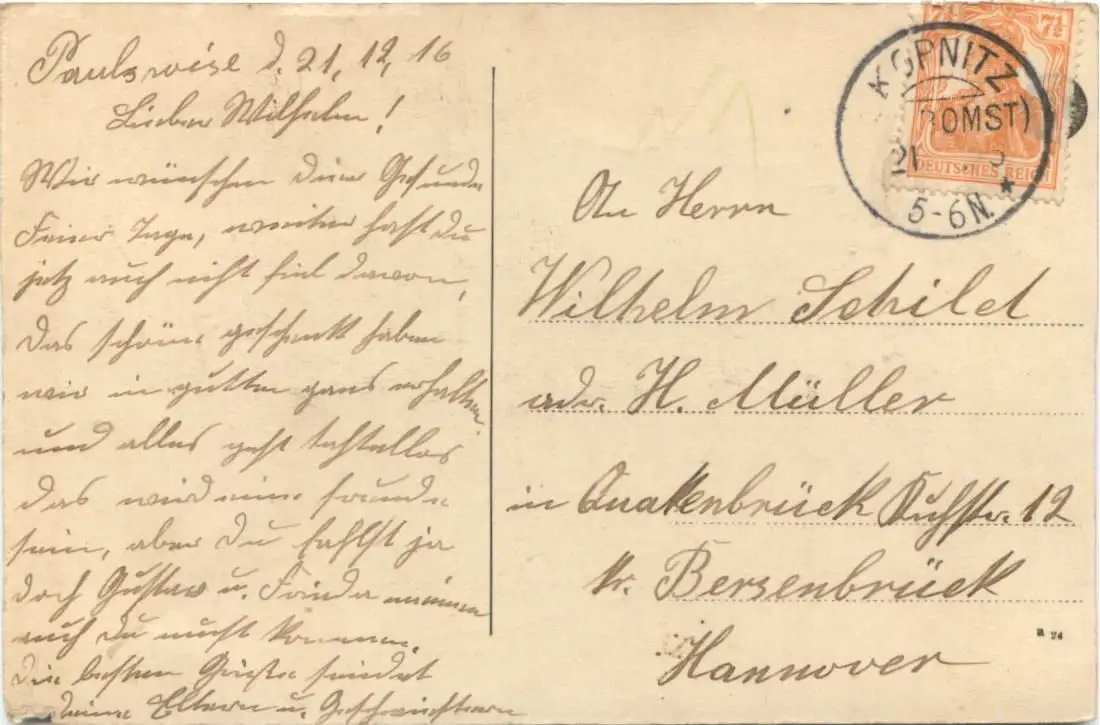 Paulswiese d. 21, 12, 16
Lieber Wilhelm!
Wir wünschen dier Gesunde
Feier Tage, weiter hast du
jetz auch nicht fiel davon,
das schöne geschenk haben
wir in gutten ganz erhalten.
und alles geht tahtellos
das wird eine freude
sein, aber du fehlst ja
doch Gustav u. Frida meinen
auch du mußt kommen.
Die besten Grüße sendet
deine Eltern u. Geschwistern
7½
KOPNITZ
(BOMST)
21
5-6N.
DEUTSCHES REICH
An Herrn
Wilhelm Schild
adr. H. Müller
in Quakenbrück Kuhstr. 12
kr. Bersenbrück
Hannover
24